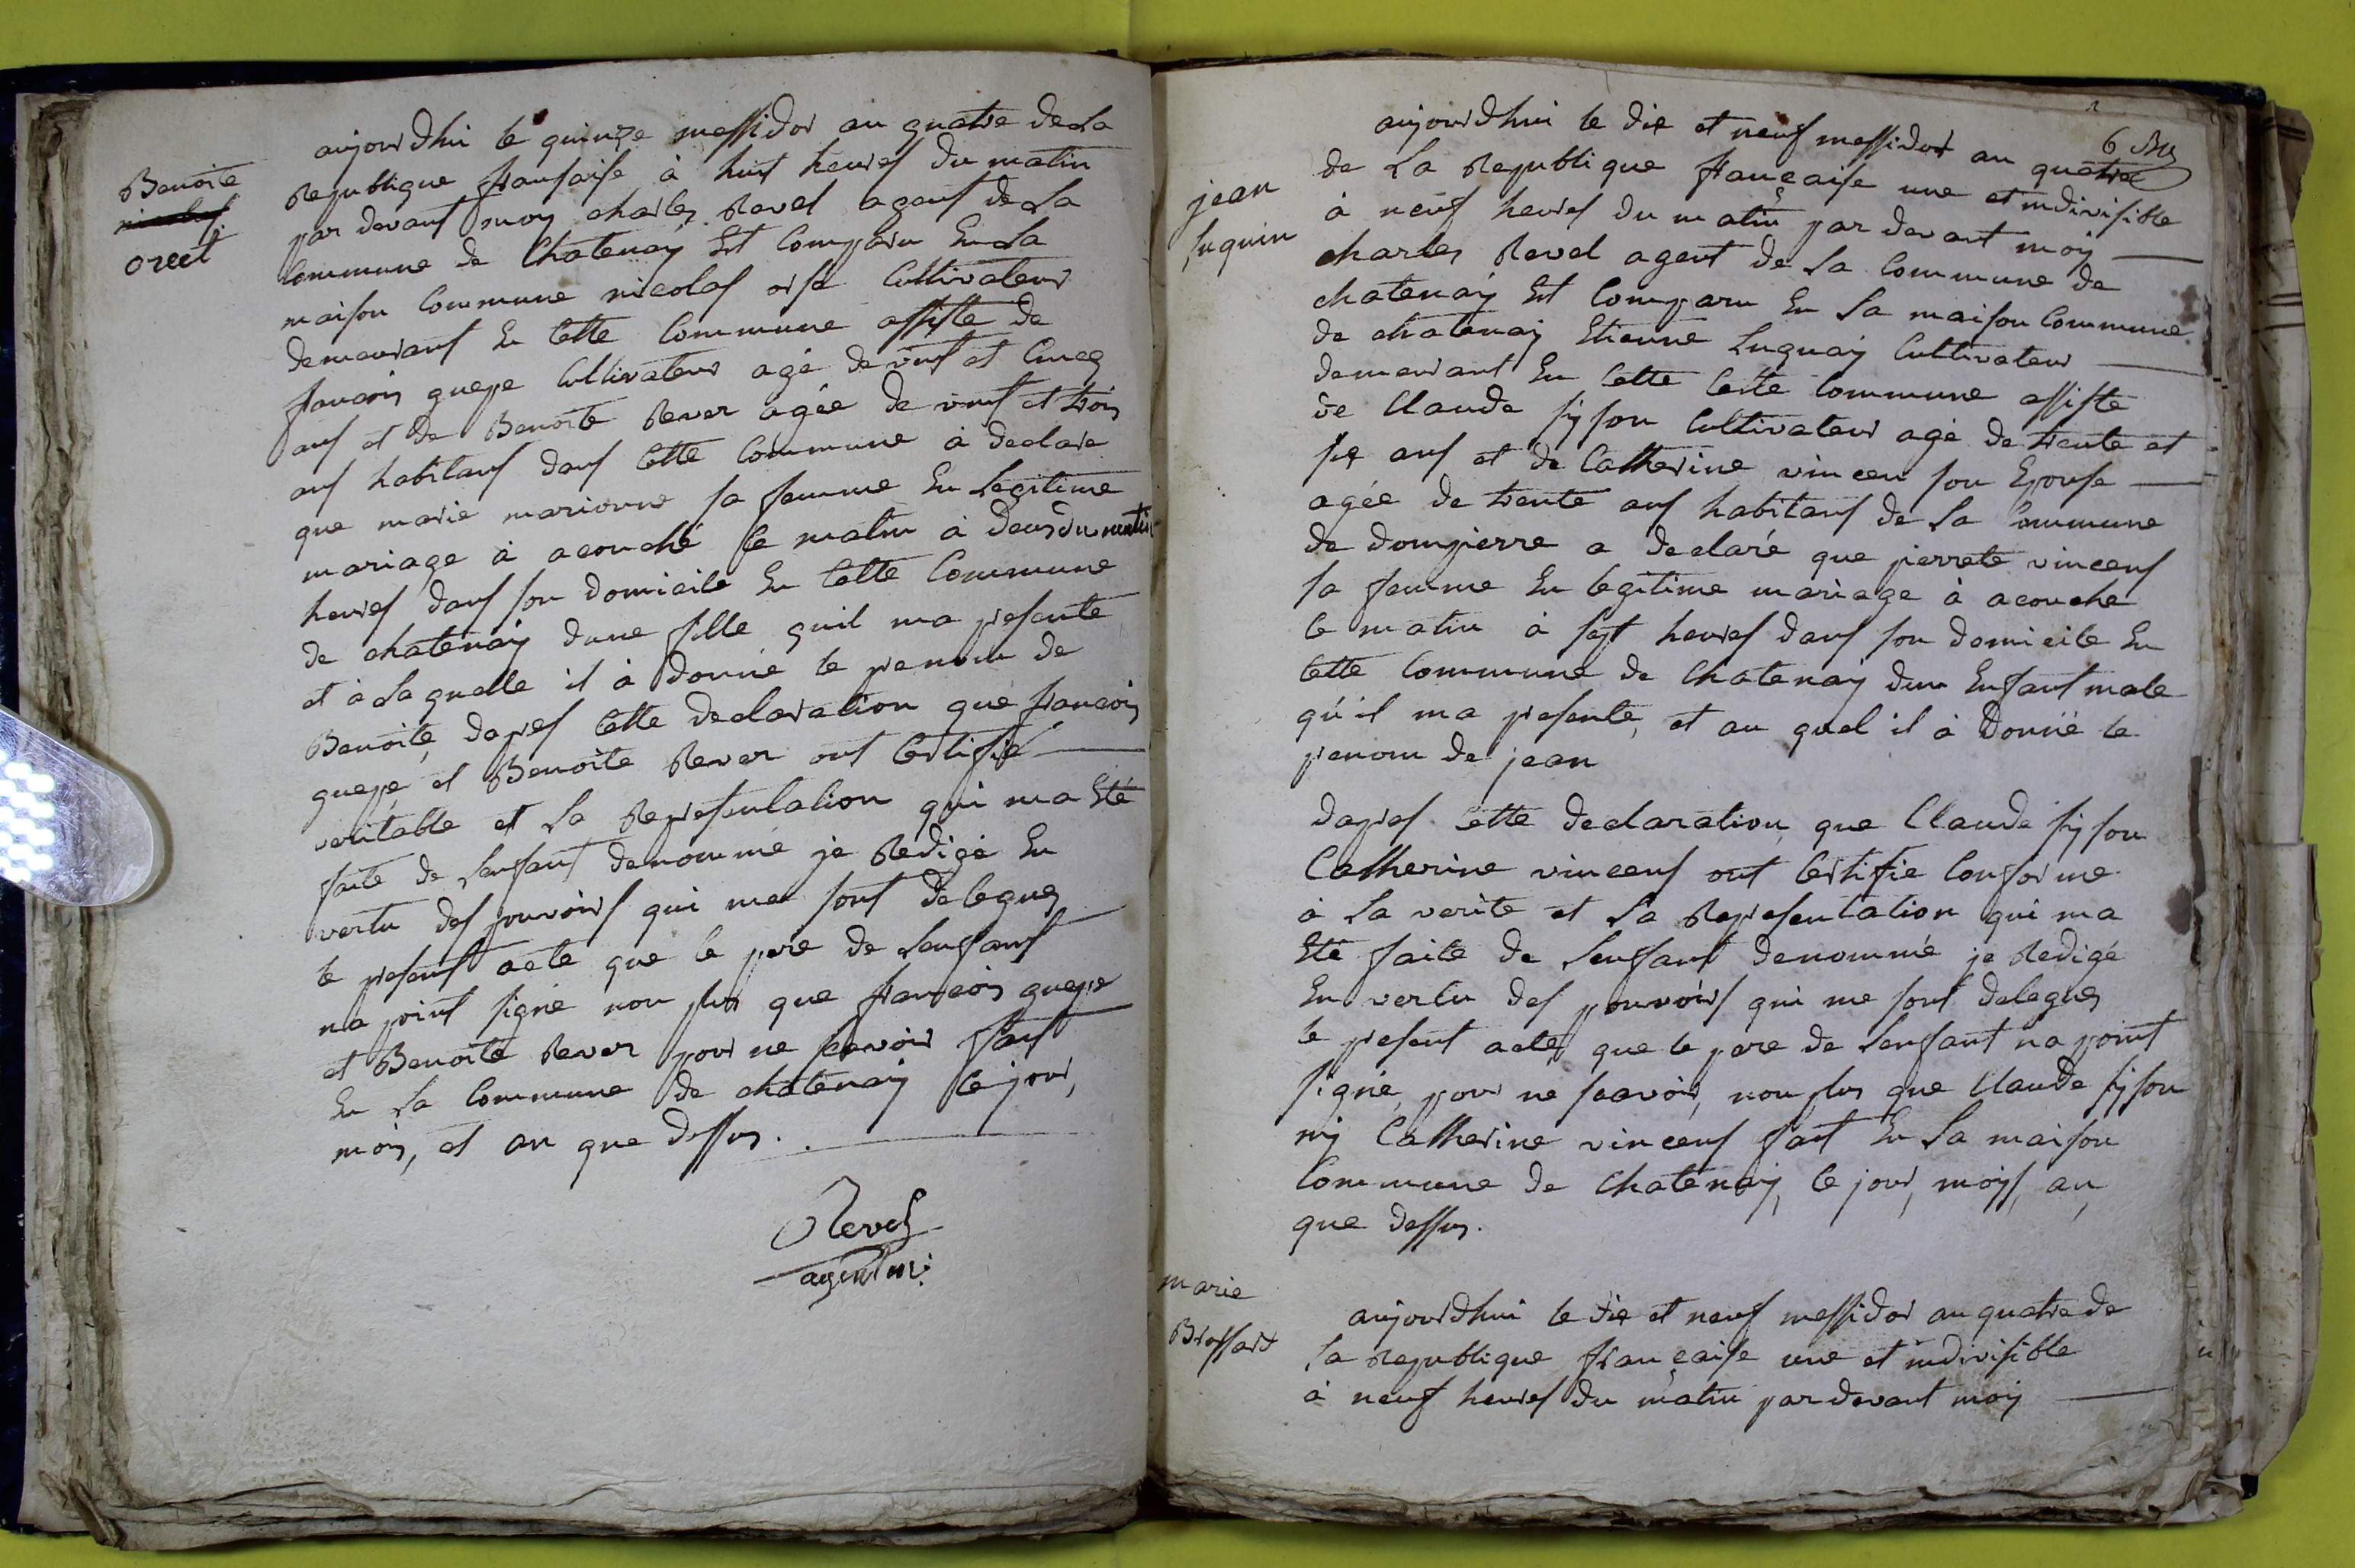 Benoite
orcet
aujourdhui le quinze messidor an quatre de La
Republique franfaise à huit heures du matin
par devant moy charles Revel agent de La
Commune de Chatenay Est Comparu En La
maison Commune nicolas orse Cultivateur
demeurant En Cette Commune assiste de
francois guepe Cultivateur agé de vint et Cincq
ans et de Benoite Rever agée de vint et trois
ans habitans dans Cette Commune à declare
que marie marionne sa femme En Legitime
mariage à acouché Ce matin à deus du matin
heures dans son domicile En Cette Commune
de chatenay dune fille quil ma presente
et à Laquelle il à donné le prenom de
Benoite, dapres Cette declaration que francois
guepe et Benoite Rever ont Certifié
veritable et La Representation qui ma Eté
faite de Lenfant denommé je Redigé En
vertu des pouvoirs qui me sont delegues
le present acte que le pere de Lenfant
na point signé non plus que francois guepe
et Benoite Rever pour ne scavoir fait
En La Commune de chatenay le jour,
mois, et an que dessus.
Revel
agent m:
6
jean
Luquin
aujourdhui le dix et neuf messidor an quatre
de La Republique française une et indivisible
à neuf heures du matin par devant moy
charles Revel agent de La Commune de
chatenay Est Comparu En La maison Commune
de chatenay Etienne Luquay Cultivateur
demeurant En Cette Cette Commune assiste
de Claude sison Cultivateur agé de trente et
six ans et de Catherine vincen son Epouse
agée de trente ans habitans de La Commune
de dompierre a declaré que pierrete vincens
sa femme En legitime mariage à acouche
le matin à sept heures dans son domicile En
Cette Commune de Chatenay dun Enfant male
qu'il ma presenté, et au quel il à donné le
prenom de jean
dapres Cette declaration que Claude sison
Catherine vincens ont Certifie Conforme
à La verite et La Representation qui ma
Eté faite de Lenfant denommé je Redigé
En vertu des pouvoirs qui me sont delegues
le present acte, que le pere de Lenfant na point
signé, pour ne scavoir, non plus que Claude sison
ny Catherine vincens fait En La maison
Commune de Chatenay, le jour, mois, an,
que dessus.
marie
Brossard
aujourdhui le dix et neuf messidor an quatre de
La Republique française une et indivisible
à neuf heures du matin par devant moy